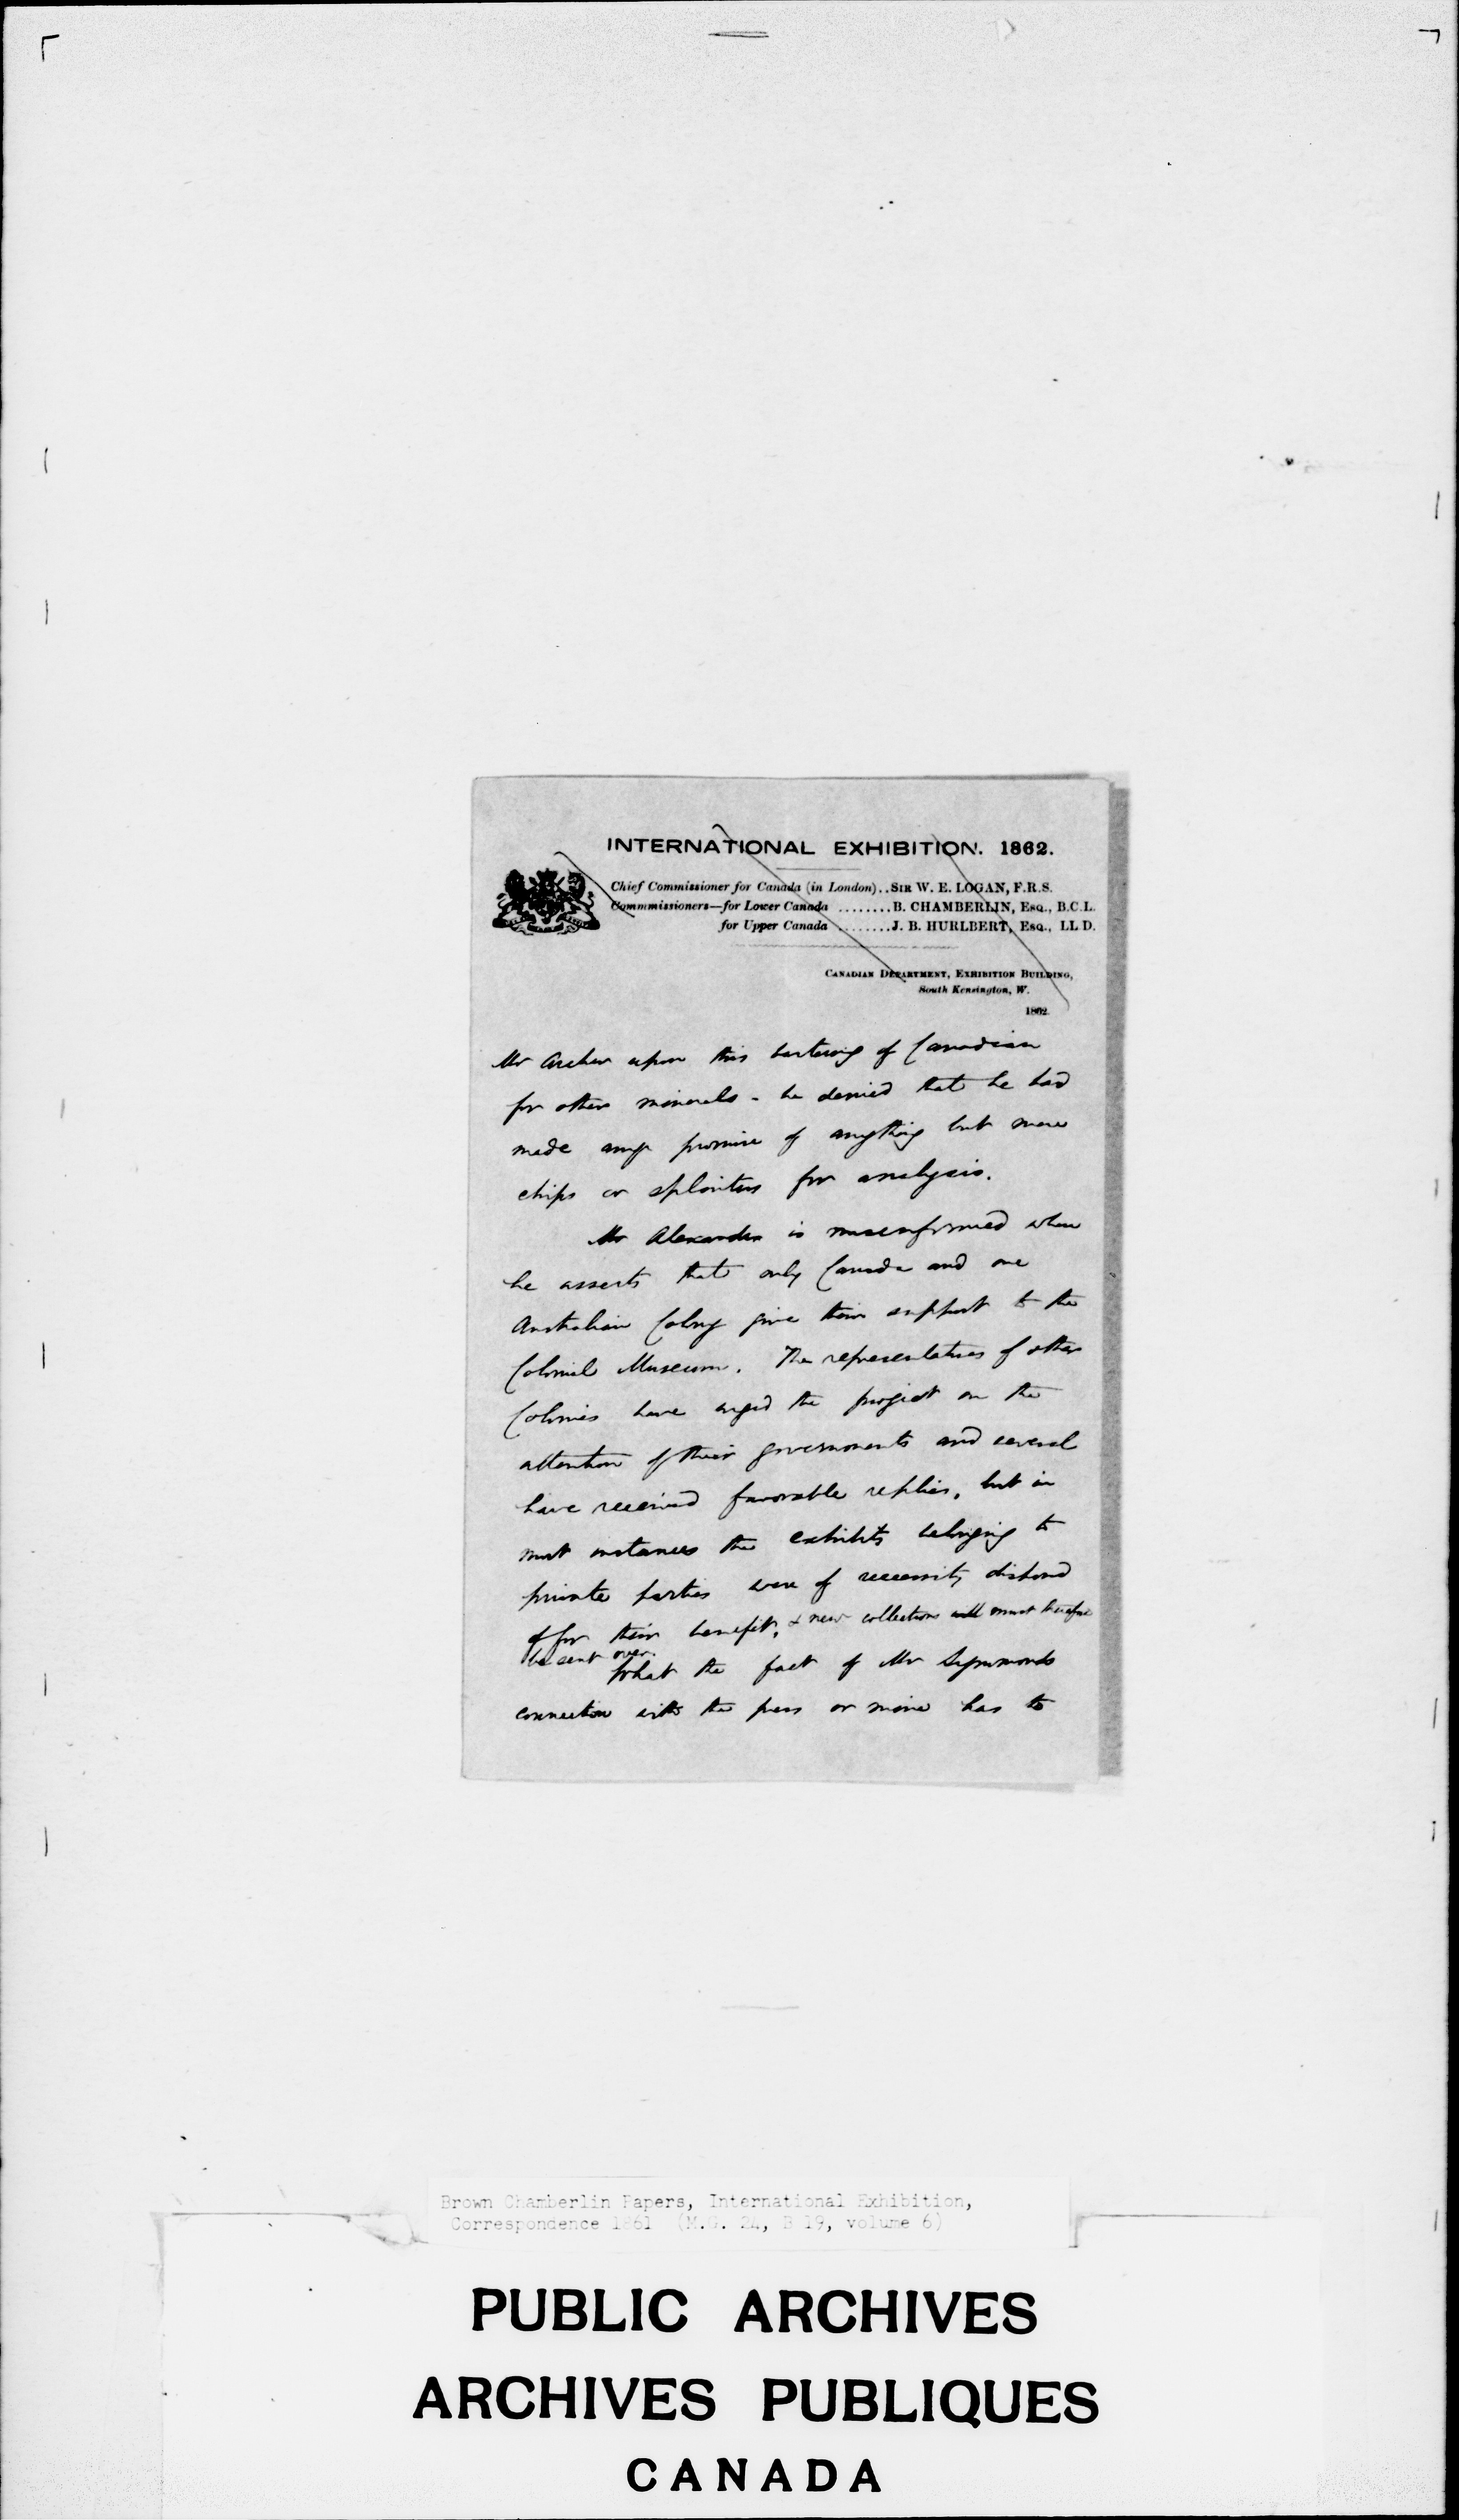 INTERNATIONAL EXHIBITION. 1862.
Chief Commissioner for Canada (in London)..SIR W. E. LOGAN, F.R.S.
Commmissioners—for Lower Canada ........B. CHAMBERLIN, ESQ., B.C.L.
for Upper Canada ........J. B. HURLBERT, ESQ., LL D.
CANADIAN DEPARTMENT, EXHIBITION BUILDING,
South Kensington, W.
1862.
Mr Archer upon this bartering of Canadian
for other minerals - he denied that he had
made any promise of anything but mere
chips or splinters for analysis.
Mr Alexander is misinformed when
he asserts that only Canada and one
Australian Colony give their support to the
Colonial Museum. The representatives of other
Colonies have urged the project on the
attention of their governments and several
have received favorable replies, but in
most instances the exhibits belonging to
private parties were of necessity disposed
of for their benefit, & new collections will must therefore
be sent over.
What the fact of Mr Symmonds
connection with the press or mine has to
Brown Chamberlin Papers, International Exhibition,
Correspondence 1861 (M.G. 24, B 19, volume 6)
PUBLIC ARCHIVES
ARCHIVES PUBLIQUES
CANADA